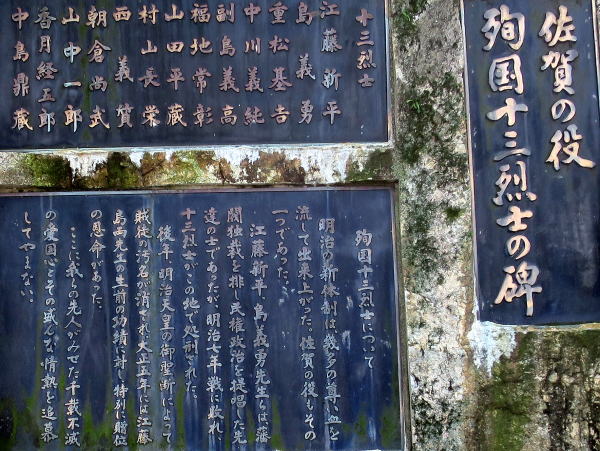 佐賀の役
殉国十三烈士の碑
十三烈士
江藤新平
島義勇
重松基吉
中川義純
副島義高
福地常彰
山田平蔵
村山長栄
西義質
朝倉尚武
山中一郎
香月経五郎
中島鼎蔵
殉国十三烈士について
明治の新体制は幾多の尊い血を
流して出来上がった。佐賀の役もその
一つであった。
江藤新平、島義勇先生らは藩
閥独裁を排し民権政治を提唱した先
達の士であったが、明治七年戦に敗れ、
十三烈士がこの地で処刑された。
後年、明治天皇の御聖断によって
賊徒の汚名が消され大正五年には江藤
島両先生の生前の功績に対し特別に贈位
の恩命があった。
ここに我らの先人がみせた千載不滅
の愛国心とその盛んな情熱を追慕
してやまない。